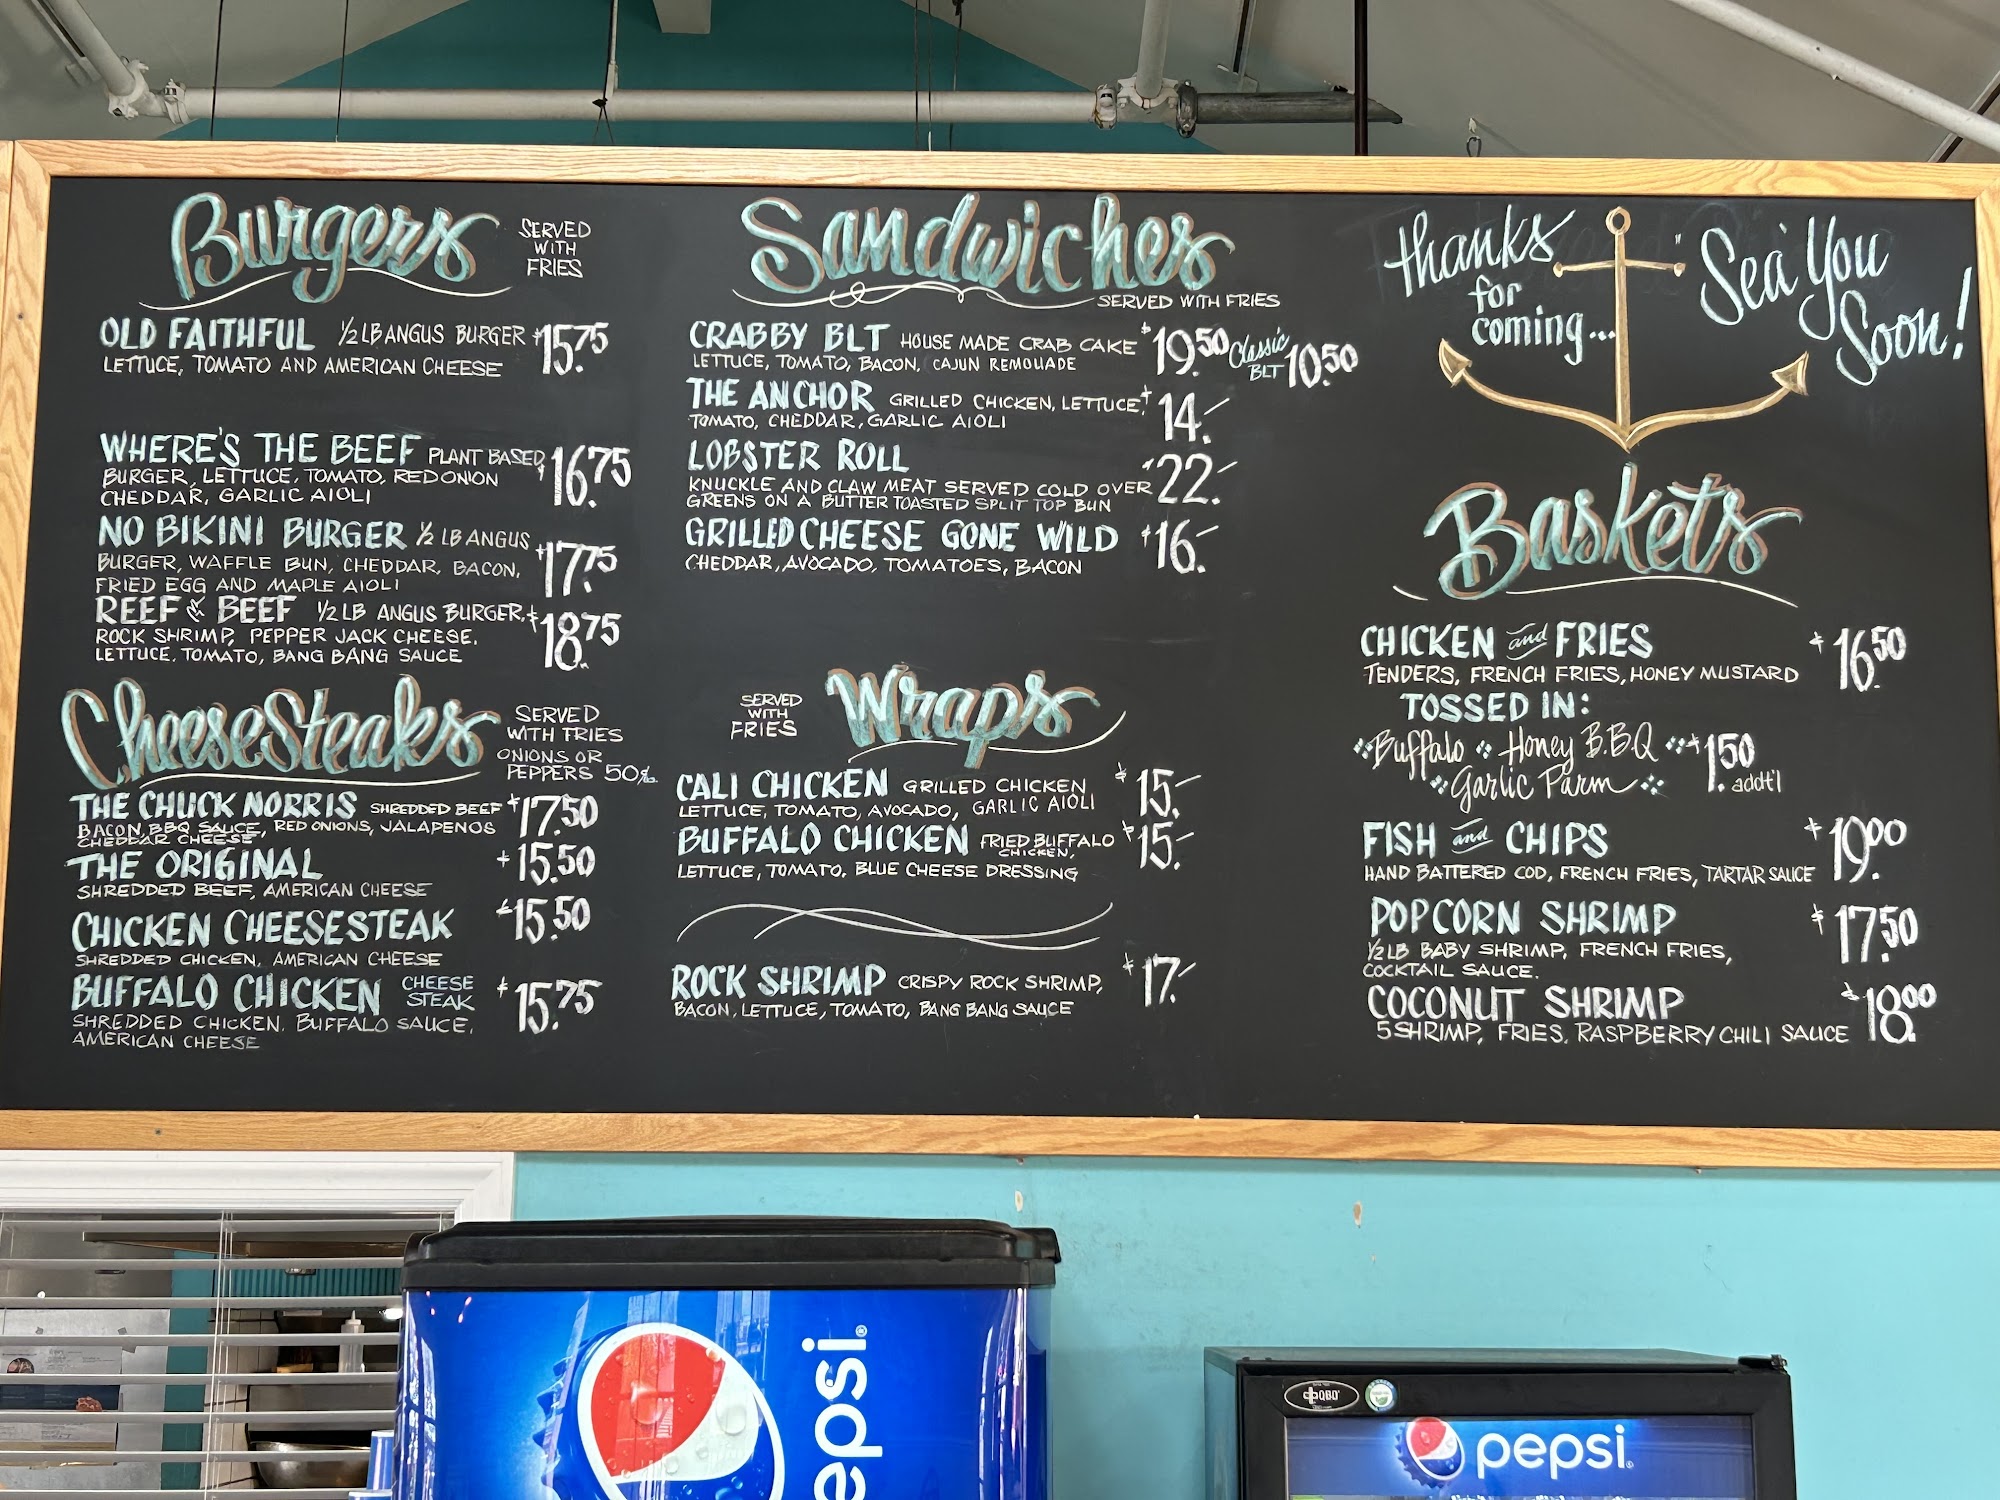 Burgers
SERVED
WITH
FRIES
OLD FAITHFUL ½ LB ANGUS BURGER $15.75
LETTUCE, TOMATO AND AMERICAN CHEESE
WHERE'S THE BEEF PLANT BASED $16.75
BURGER, LETTUCE, TOMATO, RED ONION
CHEDDAR, GARLIC AIOLI
NO BIKINI BURGER ½ LB ANGUS $17.75
BURGER, WAFFLE BUN, CHEDDAR, BACON,
FRIED EGG AND MAPLE AIOLI
REEF & BEEF 1/2 LB ANGUS BURGER, $18.75
ROCK SHRIMP, PEPPER JACK CHEESE,
LETTUCE, TOMATO, BANG BANG SAUCE
CheeseSteaks
SERVED
WITH FRIES
ONIONS OR
PEPPERS 50¢
THE CHUCK NORRIS SHREDDED BEEF $17.50
BACON, BBQ SAUCE, RED ONIONS, JALAPENOS
CHEDDAR CHEESE
THE ORIGINAL $15.50
SHREDDED BEEF, AMERICAN CHEESE
CHICKEN CHEESESTEAK $15.50
SHREDDED CHICKEN, AMERICAN CHEESE
BUFFALO CHICKEN CHEESE STEAK $15.75
SHREDDED CHICKEN, BUFFALO SAUCE,
AMERICAN CHEESE
Sandwiches
SERVED WITH FRIES
CRABBY BLT HOUSE MADE CRAB CAKE $19.50 Classic BLT 10.50
LETTUCE, TOMATO, BACON, CAJUN REMOULADE
THE ANCHOR GRILLED CHICKEN, LETTUCE, $14.-
TOMATO, CHEDDAR, GARLIC AIOLI
LOBSTER ROLL $22.-
KNUCKLE AND CLAW MEAT SERVED COLD OVER
GREENS ON A BUTTER TOASTED SPLIT TOP BUN
GRILLED CHEESE GONE WILD $16.-
CHEDDAR, AVOCADO, TOMATOES, BACON
SERVED
WITH
FRIES
Wraps
CALI CHICKEN GRILLED CHICKEN $15.-
LETTUCE, TOMATO, AVOCADO, GARLIC AIOLI
BUFFALO CHICKEN FRIED BUFFALO CHICKEN, $15.-
LETTUCE, TOMATO, BLUE CHEESE DRESSING
ROCK SHRIMP CRISPY ROCK SHRIMP, $17.-
BACON, LETTUCE, TOMATO, BANG BANG SAUCE
thanks
for
coming...
"Sea" You
Soon!
Baskets
CHICKEN and FRIES $16.50
TENDERS, FRENCH FRIES, HONEY MUSTARD
TOSSED IN:
Buffalo Honey B.B.Q $1.50
Garlic Parm addt'l
FISH and CHIPS $19.00
HAND BATTERED COD, FRENCH FRIES, TARTAR SAUCE
POPCORN SHRIMP $17.50
1/2 LB BABY SHRIMP, FRENCH FRIES,
COCKTAIL SAUCE.
COCONUT SHRIMP $18.00
5 SHRIMP, FRIES, RASPBERRY CHILI SAUCE
epsi
QBD
pepsi